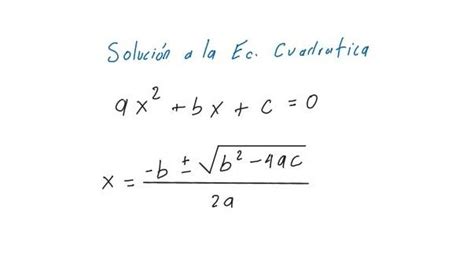 Solución a la Ec. Cuadratica
ax² + bx + c = 0
x = (-b ± √(b² - 4ac)) / 2a